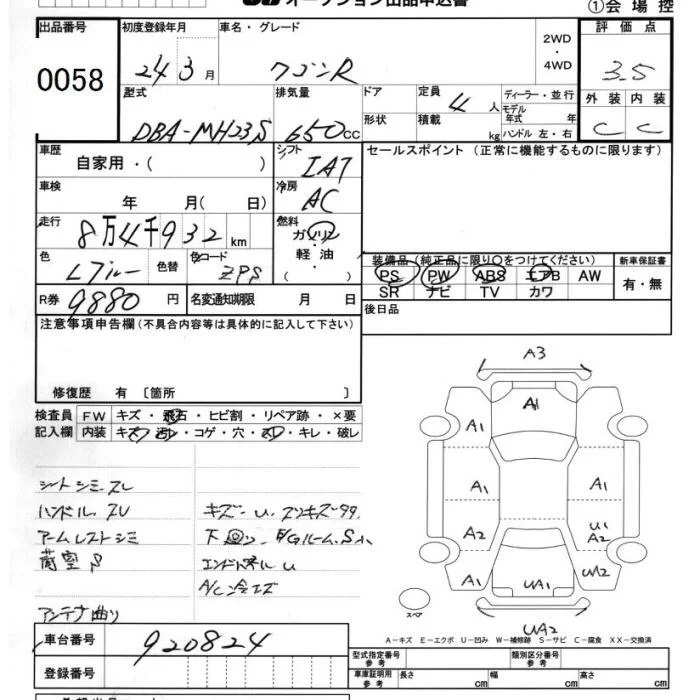 オークション出品申込書
①会場控
出品番号 初度登録年月 車名・グレード 2WD・4WD 評価点
0058 24 3月 ワゴンR 3.5
型式 排気量 ドア 定員 4人 ディーラー・並行 外装 内装
モデル年式 年
DBA-MH23S 650cc 形状 積載 kg ハンドル 左・右 C C
車歴 自家用・( ) シフト IAT セールスポイント (正常に機能するものに限ります)
車検 年 月( 日) 冷房 AC
走行 8万4千932km 燃料 ガソリン・軽油・( )
色 Lブルー 色替 色コード ZPS 装備品 (純正品に限り○をつけてください) 新車保証書
PS PW ABS エアB AW 有・無
SR ナビ TV カワ
R券 9880円 名変通知期限 月 日 後日品
注意事項申告欄(不具合内容等は具体的に記入して下さい)
修復歴 有 〔箇所 〕
検査員 FW キズ・飛石・ヒビ割・リペア跡・×要
記入欄 内装 キズ・汚レ・コゲ・穴・スレ・キレ・破レ
シートシミ・スレ
ハンドルスレ キズ・U・スリキズ多々
アームレストシミ 下廻り・E/Gルーム.S小
荷室S エンドパネルU
A/C冷エズ
アンテナ曲り
A3
A1
A1
A1 A1
A2 U1 A2
A1 UA1 UA2
スペア
UA2
A-キズ E-エクボ U-凹み W-補修跡 S-サビ C-腐食 XX-交換済
車台番号 920824
型式指定番号 参考 類別区分番号 参考
登録番号 車庫証明用 参考 長さ cm 幅 cm 高さ cm